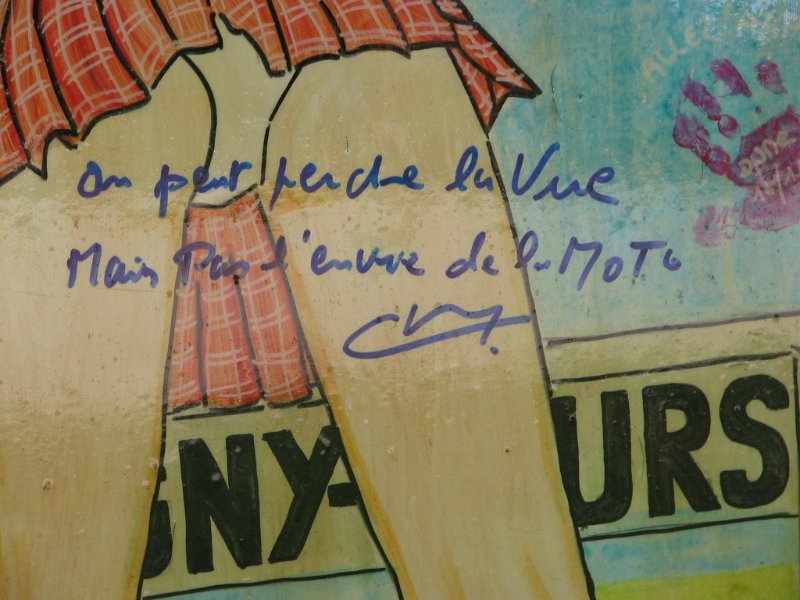 ALLEZ
DOMO
On peut perdre la Vue
Mais Pas l'envie de la MoTo
GNY-
URS